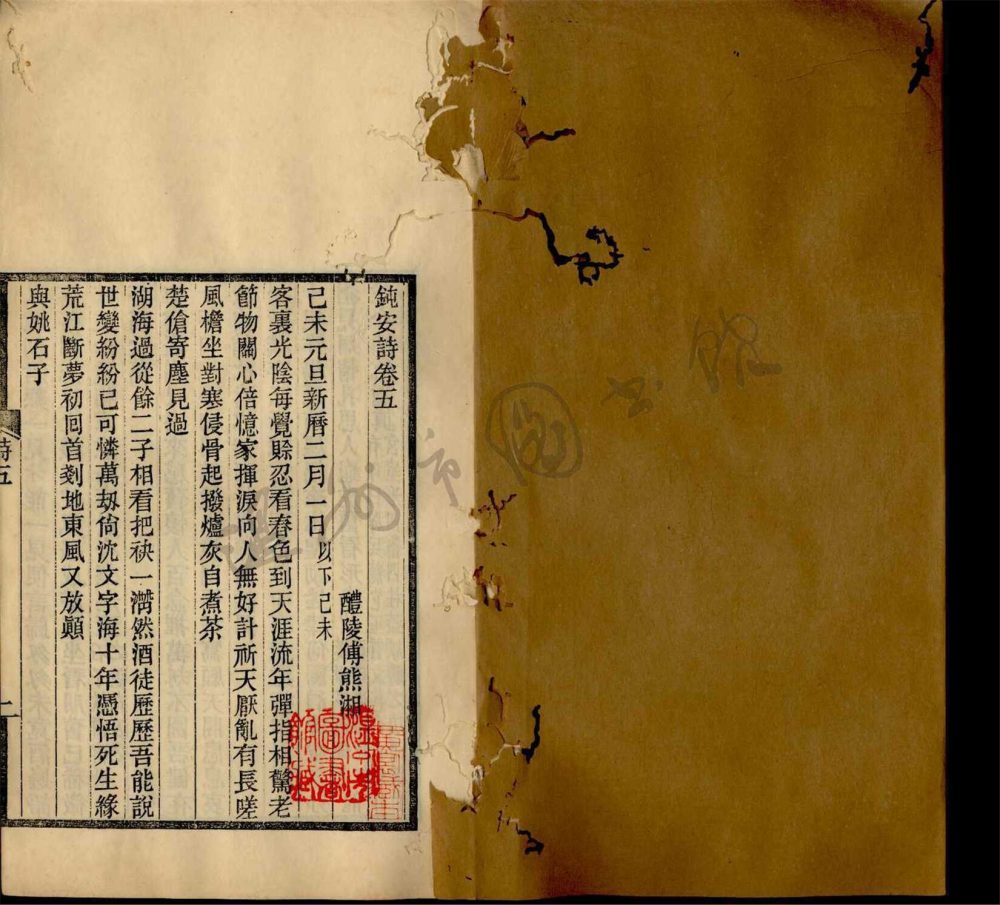 鈍安詩卷五
醴陵傅熊湘
己未元旦新曆二月一日以下己未
客裏光陰每覺賒忍看春色到天涯流年彈指相驚老
節物關心倍憶家揮淚向人無好計祈天厭亂有長嗟
風檐坐對寒侵骨起撥爐灰自煮茶
楚傖寄塵見過
湖海過從餘二子相看把袂一潸然酒徒歷歷吾能說
世變紛紛已可憐萬刼尙沈文字海十年憑悟死生緣
荒江斷夢初回首剗地東風又放顚
與姚石子
詩五
一